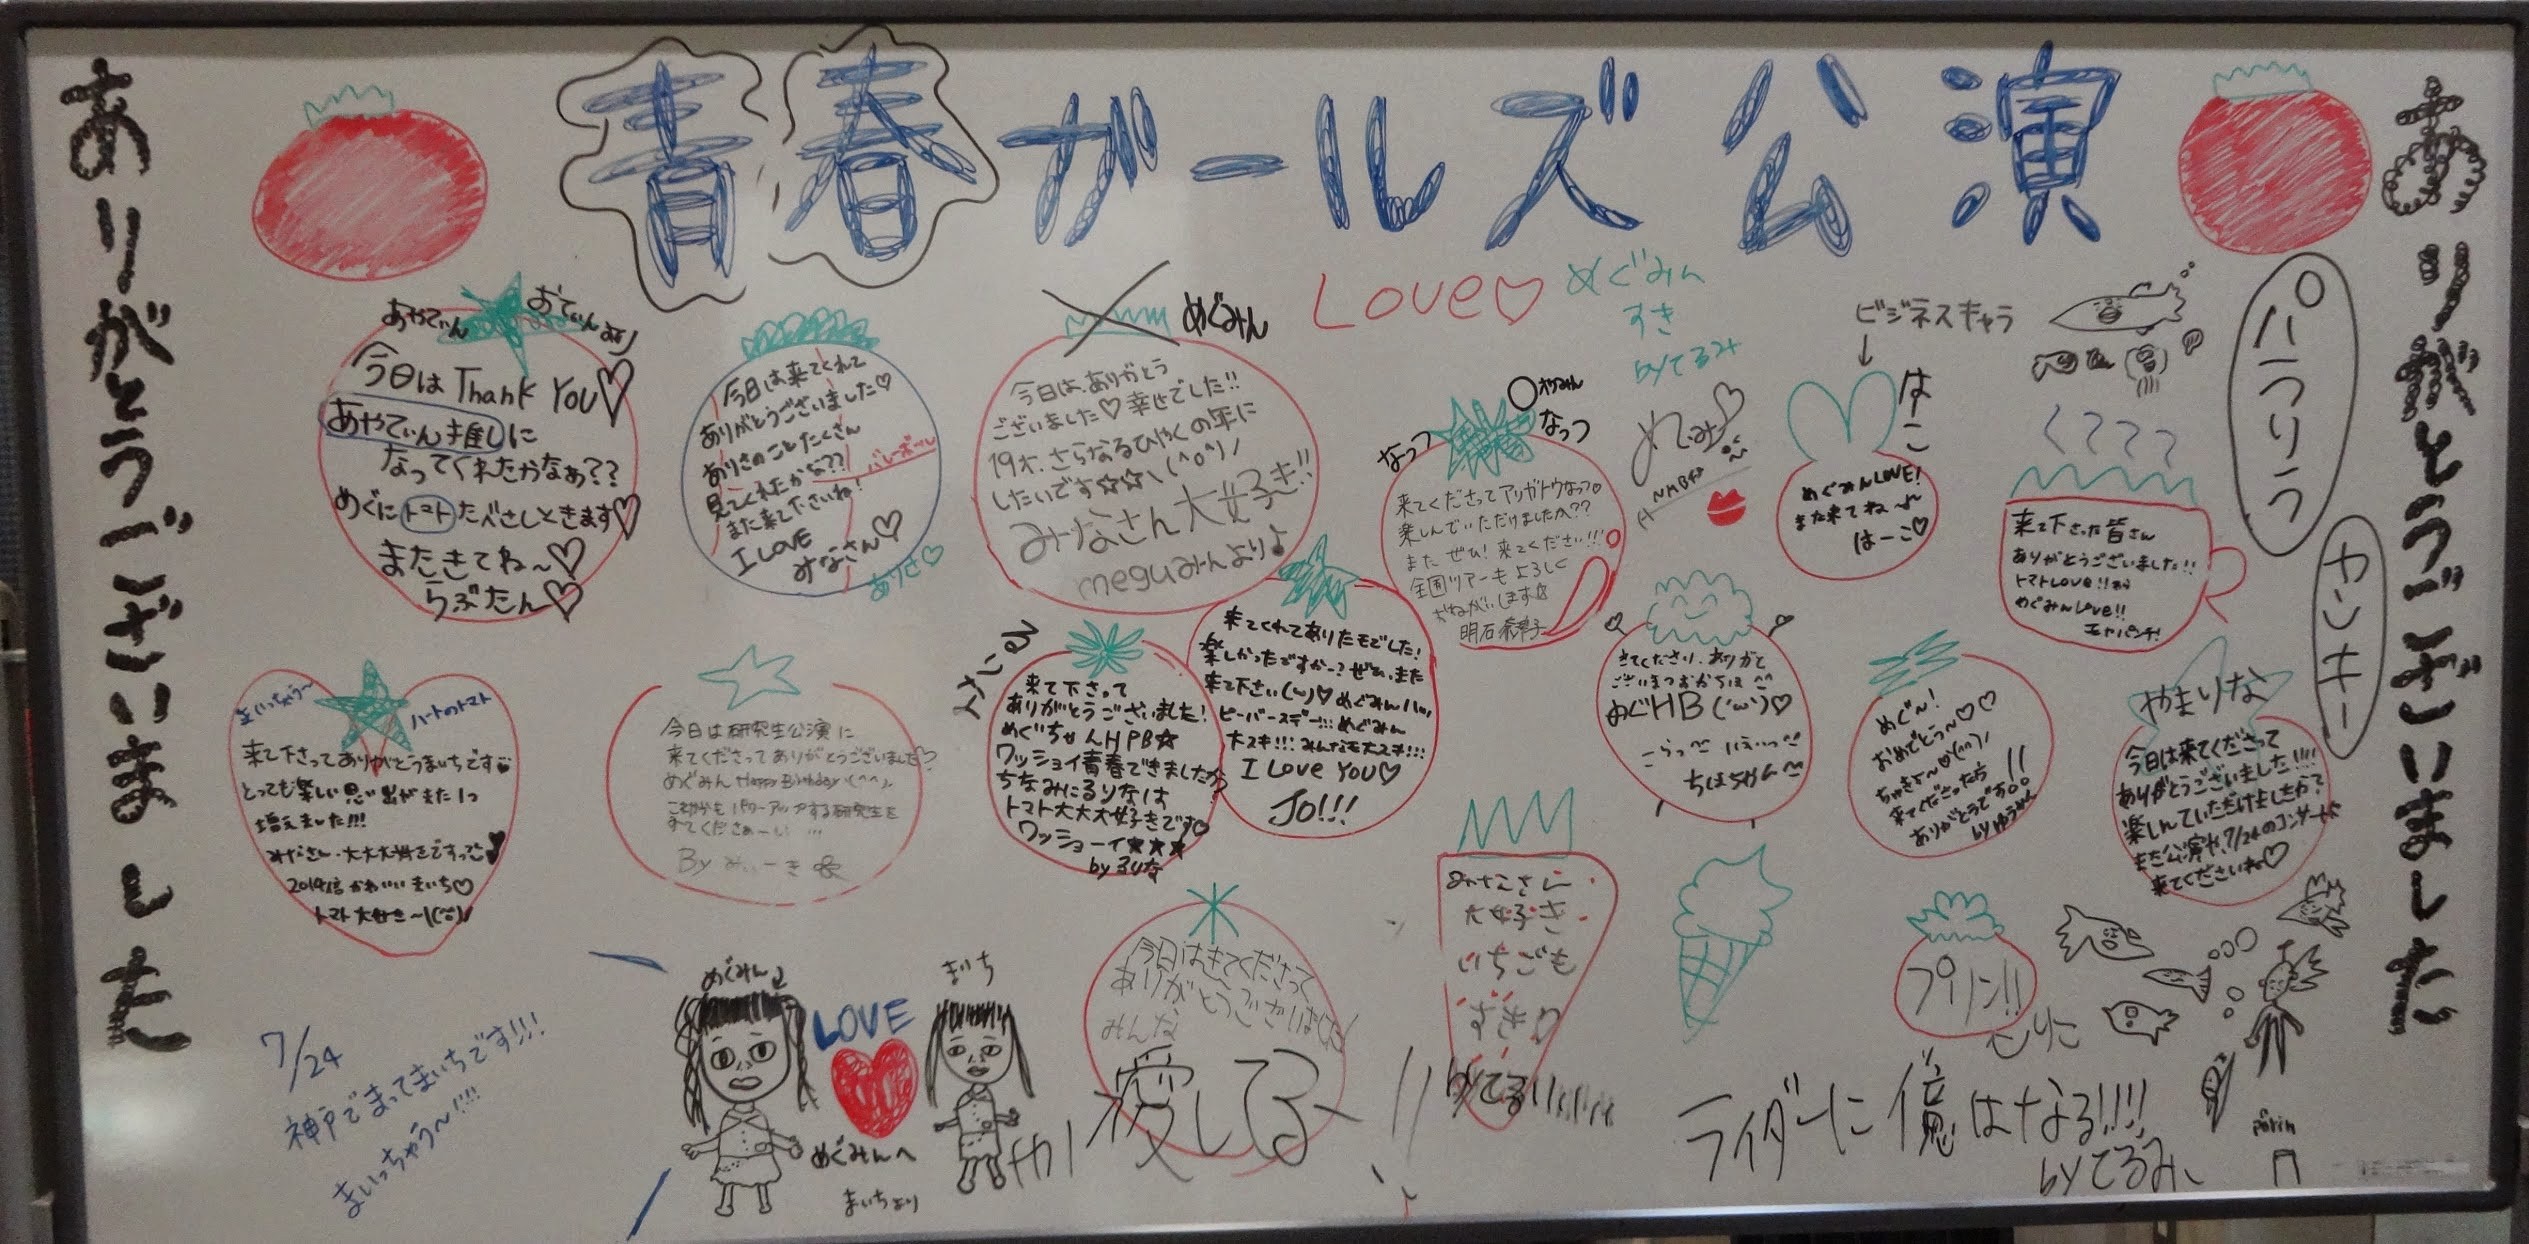 青春ガールズ公演
ありがとうございました
ありがとうございました
Love♡
めぐみん
すき
byてるみ
ビジネスキャラ
↓
はーこ
パニつりラ
ヤンキー
あやてぃん
今日は Thank YOU♡
あやてぃん推しに
なってくれたかなぁ??
めぐにトマトたべさしときます♡
またきてね~♡
らぶたん♡
今日は来てくれて
ありがとうございました♡
ありさのことたくさん
見てくれたかな??
バレーボール
また来て下さいね!
I LOVE
みなさん♡
ありさ♡
めぐみん
今日は、ありがとう
ございました♡幸せでした!!
19才、さらなるひやくの年に
したいです☆☆＼(^o^)ノ
みなさん大好き!!
meguみんより♪
なっつ
なっつ
来てくださってアリガトウなっつ
楽しんでいただけましたか??
また ぜひ! 来てください!!!
全国ツアーもよろしく
おねがいします
NMB48
めぐみんLOVE!
また来てね~
はーこ♡
来て下さった皆さん
ありがとうございました!!
トマトLove!!
めぐみんLove!!
まいっちゃう~
ハートのトマト
来て下さってありがとうまいちです
とっても楽しい思い出がまた1つ
増えました!!!
みなさん大大大好きですっ
2014倍かわいいまいち♡
トマト大好き~
今日は研究生公演に
来てくださってありがとうございました♡
めぐみん Happy Birthday (^^)
これからもパワーアップする研究生を
By みぃーき
来て下さって
ありがとうございました!
めぐちゃんHPB☆
ワッショイ青春できましたか
ちなみにるりなは
トマト大大大好きです♡
ワッショーイ★★★
byるりな
来てくれてありたモでした!
楽しかったですかー?ぜひ、また
来て下さい(^^)♡めぐみんハッ
ピーバースデー!!!めぐみん
大スキ!!!みんなも大スキ!!!
I Love YOU♡
JO!!!
きてくださり、ありがと
めぐHB('ω')♡
ちほちゃん
めぐ~!
おめでとう~♡♡
来てくださった方
ありがとうです
やまりな
今日は来てくださって
ありがとうございました!!!!
楽しんでいただけましたか?
また公演や、7/24のコンサートに
来てくださいね♡
みなさん
大好き
いちごも
すき♡
byてる
プリン!!
今日はきてくださって
ありがとうございました
みんな
愛してるー!!
めぐみん
まいち
LOVE
めぐみんへ
まいちより
7/24
神戸でまってまいちです!!!
まいっちゃう~!!!
ライダーに俺はなる!!!!
byてるみ